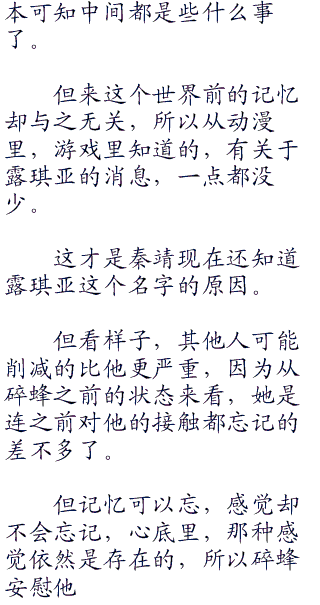 本可知中间都是些什么事
了。
但来这个世界前的记忆
却与之无关，所以从动漫
里，游戏里知道的，有关于
露琪亚的消息，一点都没
少。
这才是秦靖现在还知道
露琪亚这个名字的原因。
但看样子，其他人可能
削减的比他更严重，因为从
碎蜂之前的状态来看，她是
连之前对他的接触都忘记的
差不多了。
但记忆可以忘，感觉却
不会忘记，心底里，那种感
觉依然是存在的，所以碎蜂
安慰他